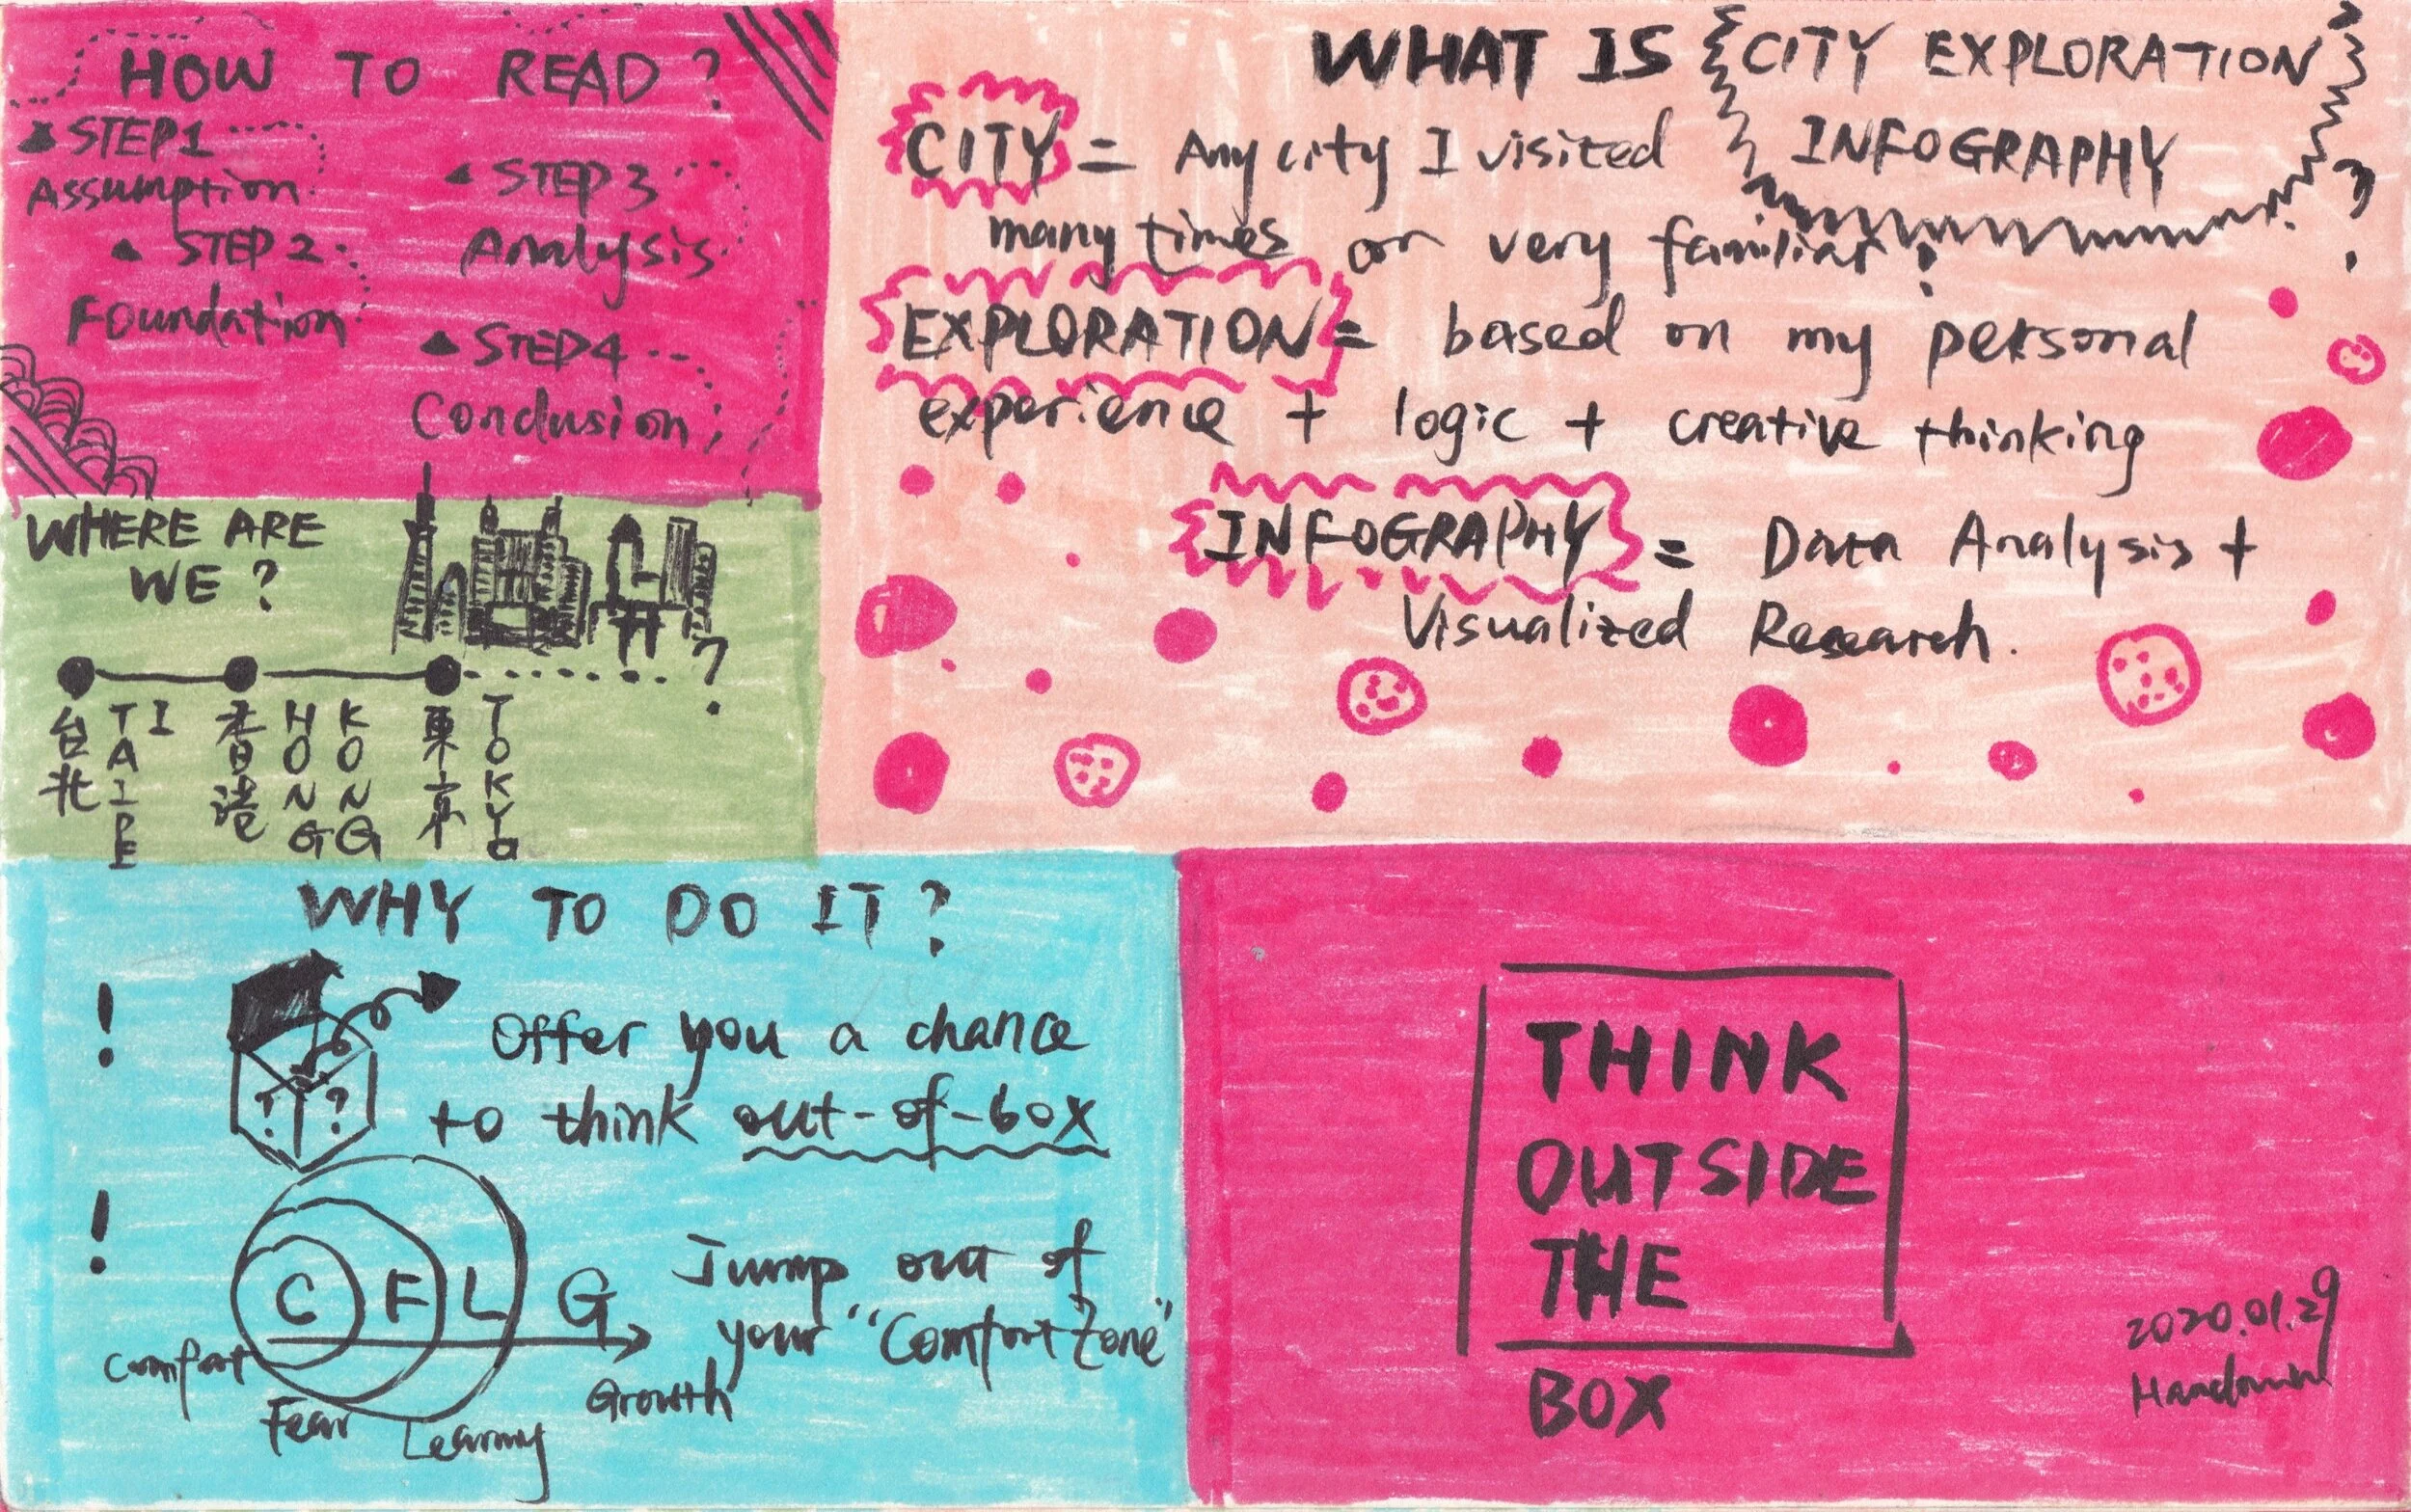 HOW TO READ?
STEP1
Assumption
STEP 2
Foundation
STEP 3
Analysis
STEP4
Conclusion
WHAT IS CITY EXPLORATION
INFOGRAPHY?
CITY = Any city I visited
many times or very familiar.
EXPLORATION = based on my personal
experience + logic + creative thinking
INFOGRAPHY = Data Analysis +
Visualized Research.
WHERE ARE
WE?
?
台北
TAIPEI
香港
HONG KONG
東京
TOKYO
WHY TO DO IT?
!
? ?
Offer you a chance
to think out-of-box
!
C F L G
Comfort
Fear
Learning
Growth
Jump out of
your "Comfort Zone"
THINK
OUTSIDE
THE
BOX
2020.01.29